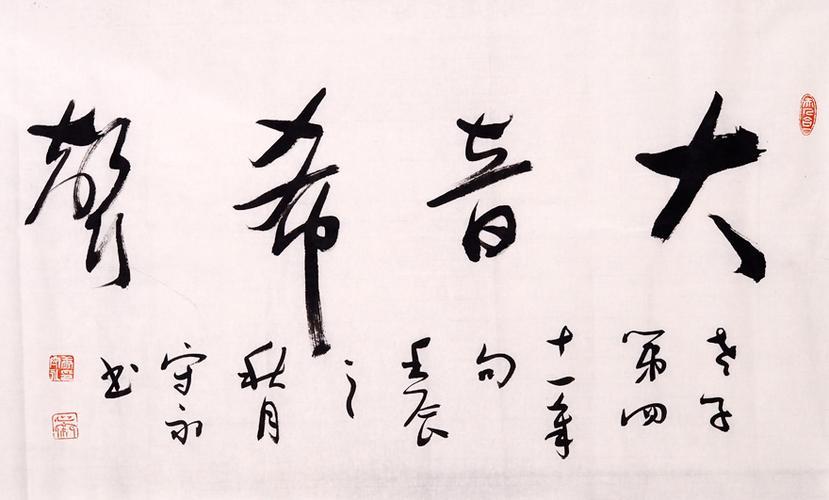 大音希聲
老子
第四
十一章
句
壬辰
之
秋月
守永
书